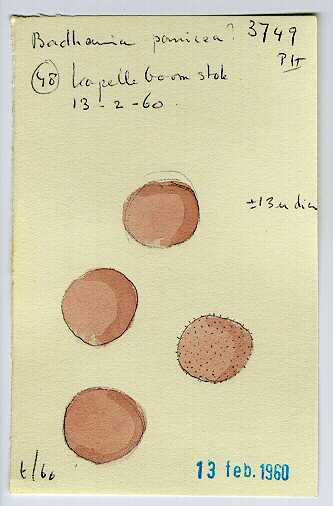 Badhamia panicea? 3749
PII
(48) Kapelle boom stok
13 - 2 - 60.
±13 u diam
t/60
13 feb. 1960